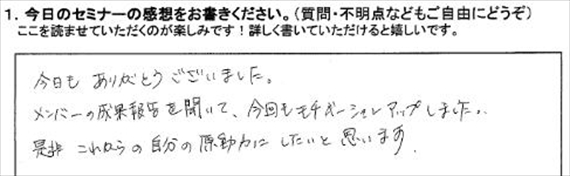 1. 今日のセミナーの感想をお書きください。（質問・不明点などもご自由にどうぞ）
ここを読ませていただくのが楽しみです！詳しく書いていただけると嬉しいです。
今日も ありがとうございました。
メンバーの成果報告を聞いて、今回もモチベーションアップしました。
是非 これからの自分の原動力にしたいと思います。